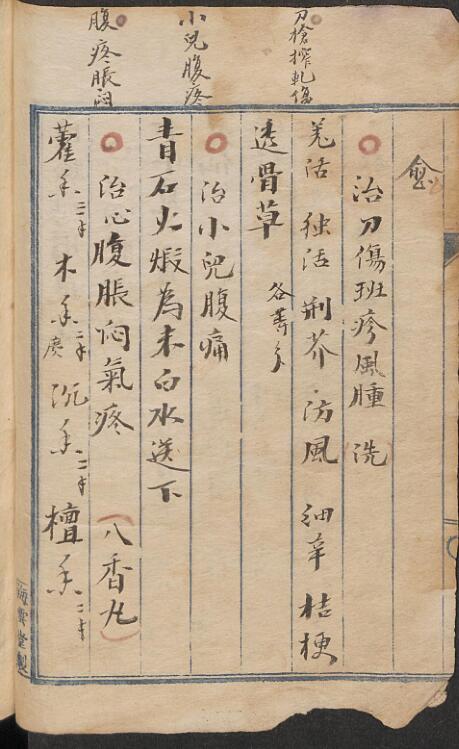 刀槍搾軋傷
小兒腹疼
腹疼脹悶
治刀傷班疹風腫(洗)
羌活 独活 荆芥 防風 细辛 桔梗
透骨草 各等分
治小兒腹痛
青石火煅為末白水送下
治心腹脹悶氣疼 (八香丸)
藿香二子 木香二子 廣 沉香二子 檀香二子
海雲堂製